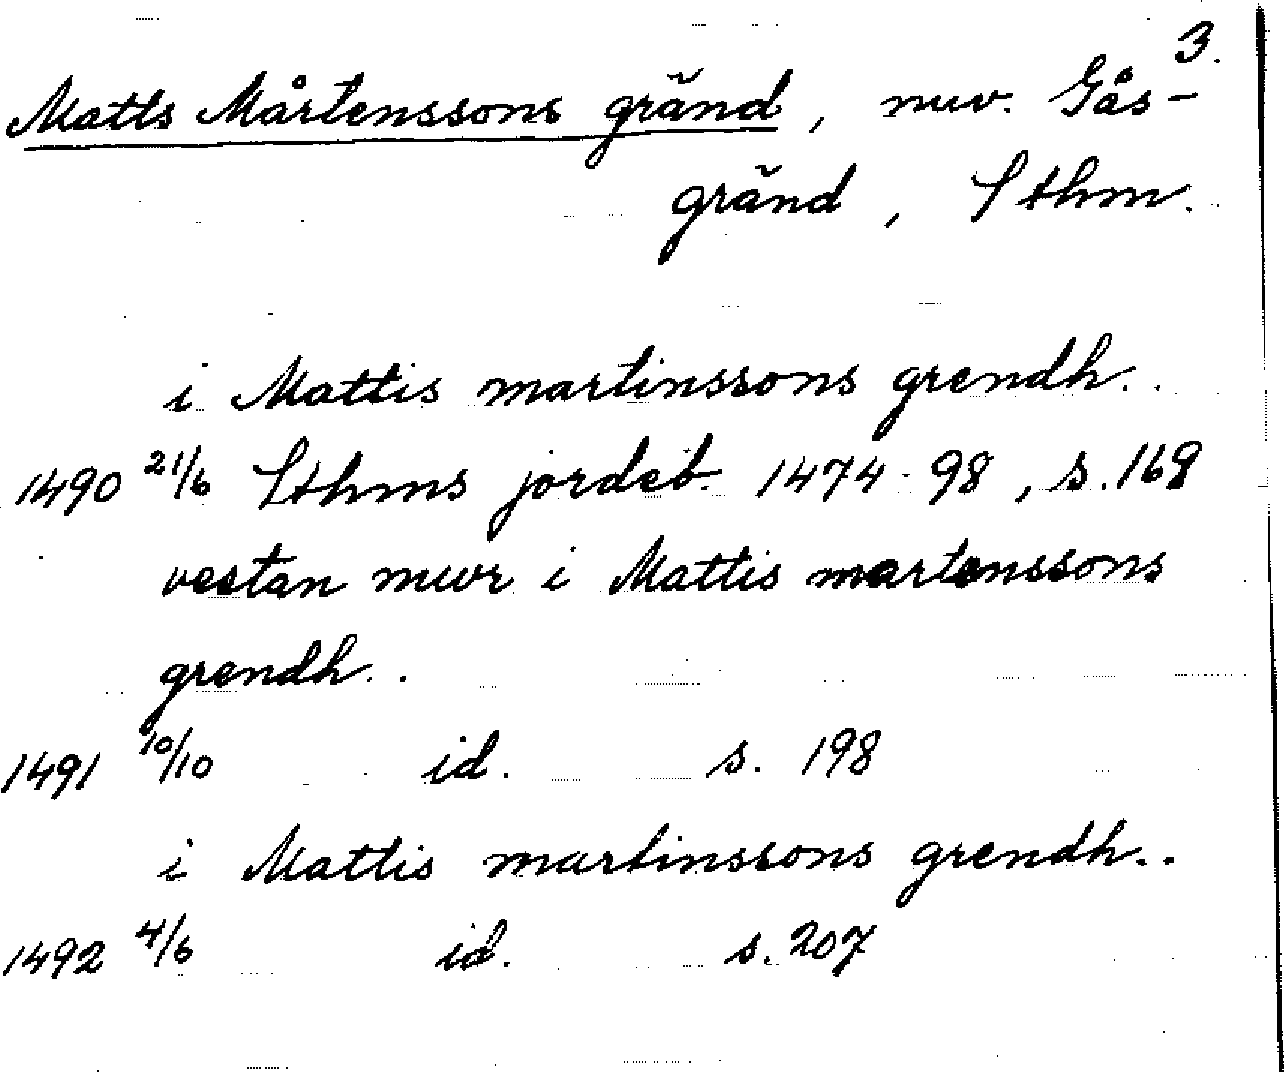 3.
Matts Mårtenssons gränd, nuv. Gås-
gränd, Sthm.
i Mattis martinssons grendh..
1490 21/6 Sthms jordeb. 1474-98, s. 168
vestan mwr i Mattis martenssons
grendh..
1491 10/10 id. s. 198
i Mattis martinssons grendh..
1492 4/6 id. s. 207